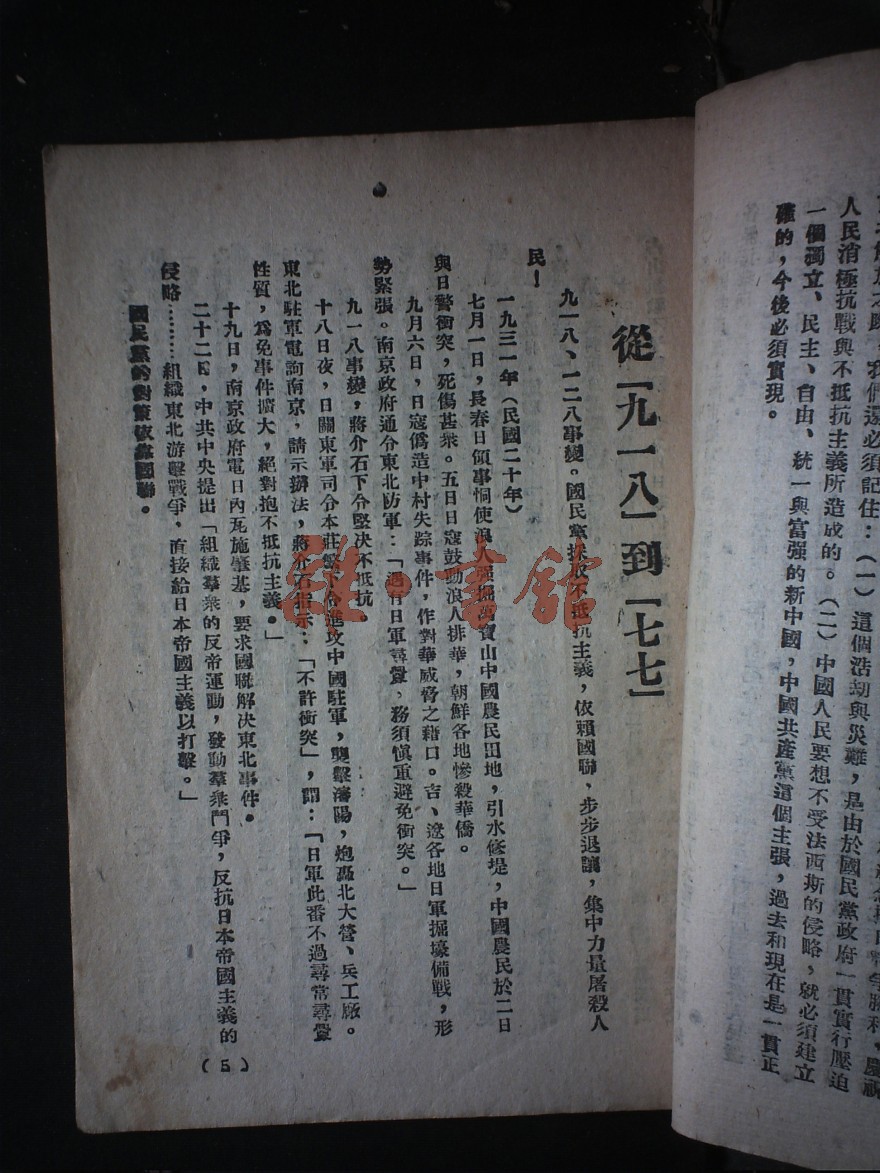 人民消極抗戰與不抵抗主義所造成的。（二）中國人民要想不受法西斯的侵略，就必須建立
一個獨立、民主、自由、統一與富强的新中國，中國共產黨這個主張，過去和現在是一貫正
確的，今後必須實現。
從「九一八」到「七七」
九一八、一二八事變。國民黨採取不抵抗主義，依賴國聯，步步退讓，集中力量屠殺人
民！
一九三一年（民國二十年）
七月一日，長春日領事恫使浪人强掘萬寶山中國農民田地，引水修堤，中國農民於二日
與日警衝突，死傷甚衆。五日日寇鼓動浪人排華，朝鮮各地慘殺華僑。
九月六日，日寇僞造中村失踪事件，作對華威脅之藉口。吉、遼各地日軍掘壕備戰，形
勢緊張。南京政府通令東北防軍：「遇有日軍尋釁、務須愼重避免衝突。」
九一八事變，蔣介石下令堅决不抵抗。
十八日夜，日關東軍司令本莊繁下令進攻中國駐軍，襲擊瀋陽，炮轟北大營、兵工廠。
東北駐軍電詢南京，請示辦法，蔣介石指示：「不許衝突」，聞：「日軍此番不過尋常尋釁
性質，爲免事件擴大，絕對抱不抵抗主義。」
十九日，南京政府電日內瓦施肇基，要求國聯解决東北事件。
二十二日，中共中央提出「組織羣衆的反帝運動，發動羣衆鬥爭，反抗日本帝國主義的
侵略………組織東北游擊戰爭，直接給日本帝國主義以打擊。」
國民黨的對策依靠國聯。
（5）
書館